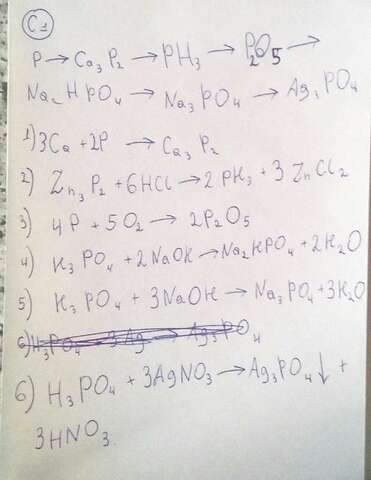 C2
P → Ca₃P₂ → PH₃ → P₂O₅ →
Na₂HPO₄ → Na₃PO₄ → Ag₃PO₄
1) 3Ca + 2P → Ca₃P₂
2) Zn₃P₂ + 6HCl → 2PH₃ + 3ZnCl₂
3) 4P + 5O₂ → 2P₂O₅
4) H₃PO₄ + 2NaOH → Na₂HPO₄ + 2H₂O
5) H₃PO₄ + 3NaOH → Na₃PO₄ + 3H₂O
6) H₃PO₄ 3Ag → Ag₃PO₄
6) H₃PO₄ + 3AgNO₃ → Ag₃PO₄↓ +
3HNO₃.